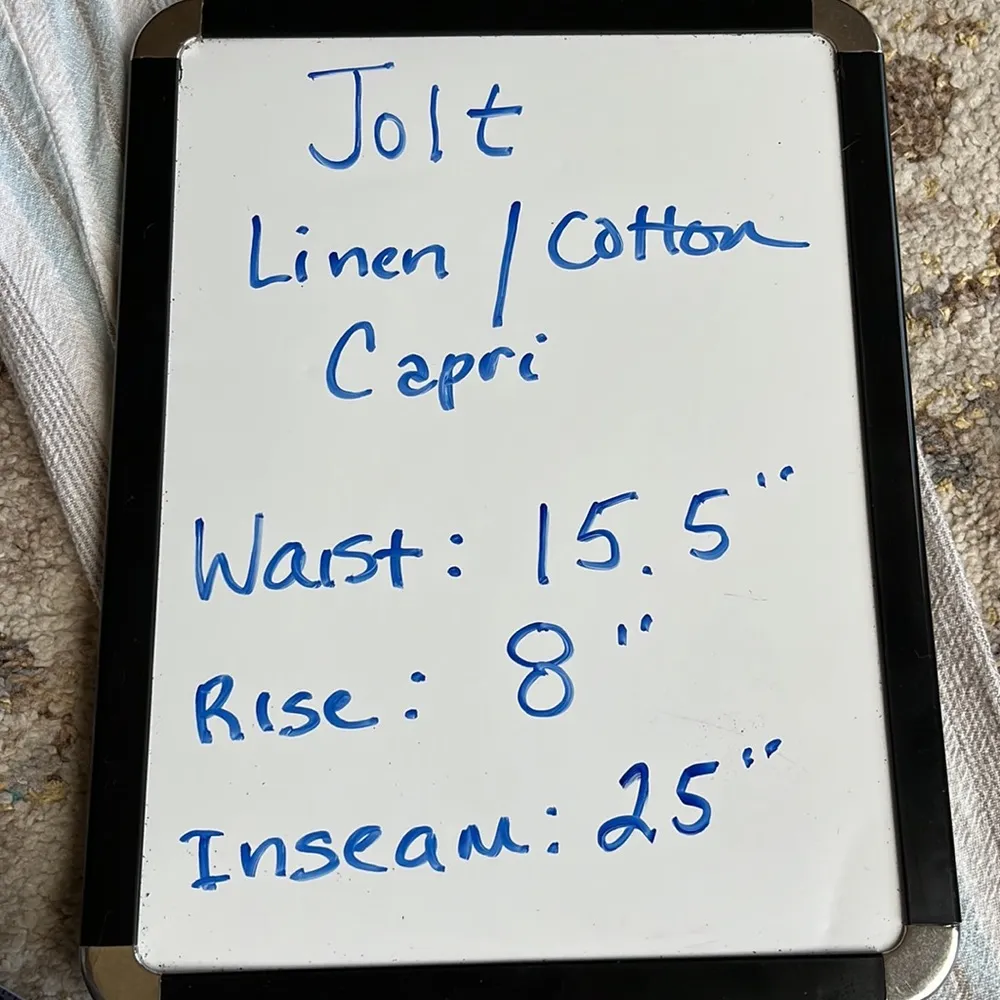 Jolt
Linen / Cotton
Capri
Waist: 15.5"
Rise: 8"
Inseam: 25"